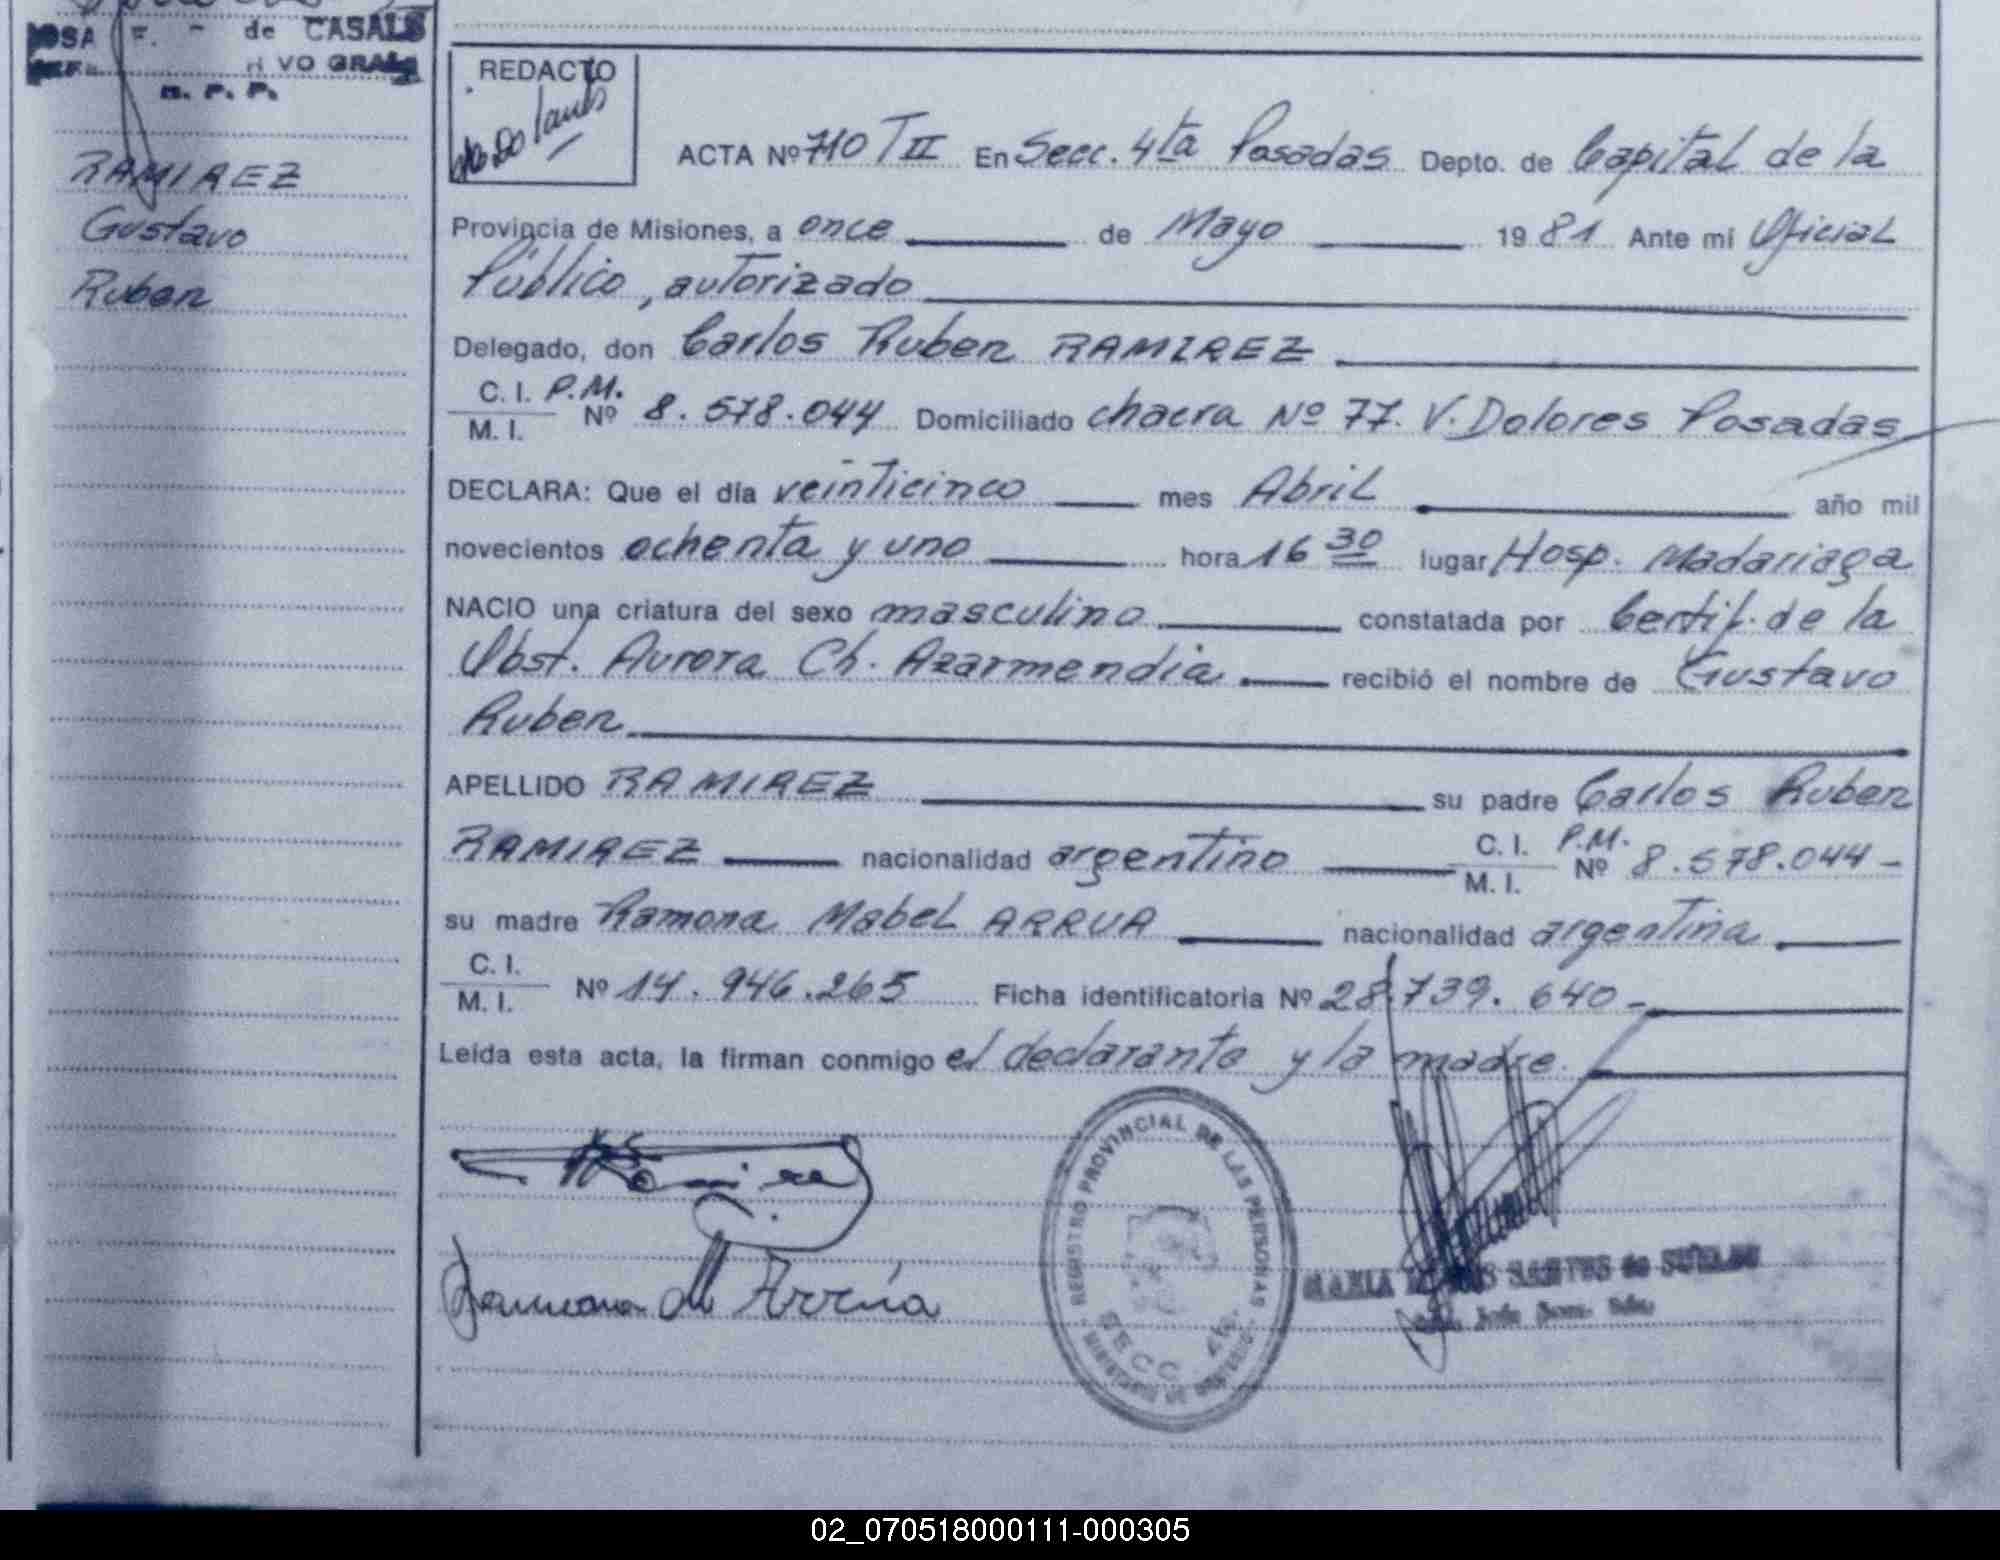 de CASALS
VO GRAL
R. P. P.
RAMIREZ
Gustavo
Ruben
REDACTO
ACTA Nº 710 T II En Secc. 4ta Posadas Depto. de Capital de la
Provincia de Misiones, a once de Mayo 1981 Ante mi Oficial
Público, autorizado
Delegado, don Carlos Ruben RAMIREZ
C. I. P.M.
M. I. Nº 8.578.044 Domiciliado chacra Nº 77. V. Dolores Posadas
DECLARA: Que el día veinticinco mes Abril año mil
novecientos ochenta y uno hora 16 30 lugar Hosp. Madariaga
NACIO una criatura del sexo masculino constatada por Certif. de la
Obst. Aurora Ch. Azarmendia recibió el nombre de Gustavo
Ruben
APELLIDO RAMIREZ su padre Carlos Ruben
RAMIREZ nacionalidad argentino C. I. P.M. M. I. Nº 8.578.044-
su madre Ramona Mabel ARRUA nacionalidad argentina
C. I.
M. I. Nº 14.946.265 Ficha identificatoria Nº 28.739.640-
Leída esta acta, la firman conmigo el declarante y la madre.
REGISTRO PROVINCIAL DE LAS PERSONAS
SECC. 4ta
MARIA SANTOS de
02_070518000111-000305